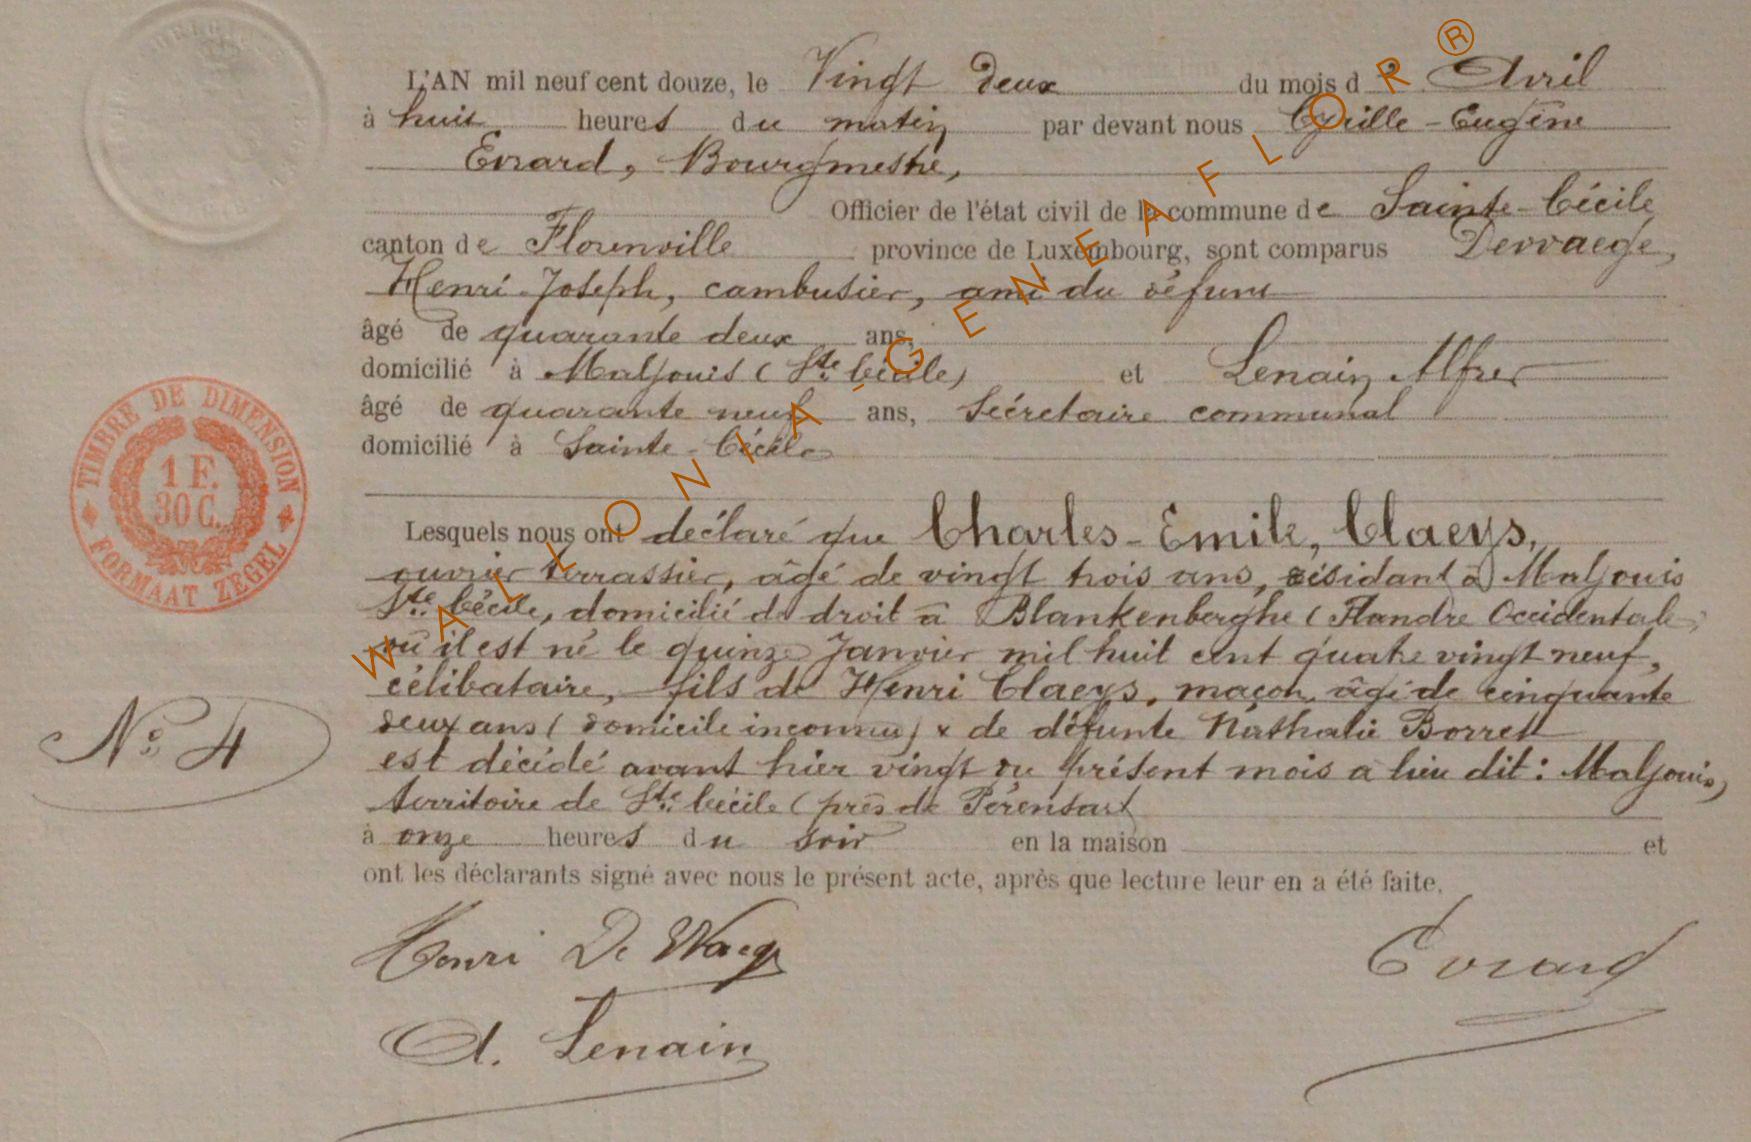 L'AN mil neuf cent douze, le Vingt deux du mois d' Avril
à huit heures du matin par devant nous Cyrille-Eugène
Evrard, Bourgmestre,
Officier de l'état civil de la commune de Sainte-Cécile
canton de Florenville province de Luxembourg, sont comparus Dewaege,
Henri-Joseph, cambusier, ami du défunt
âgé de quarante deux ans,
domicilié à Maljouis (Ste Cécile) et Lenain Alfred
âgé de quarante neuf ans, Sécretaire communal
domicilié à Sainte-Cécile
Lesquels nous ont déclaré que Charles-Emile, Claeys,
ouvrier terrassier, âgé de vingt trois ans, résidant à Maljouis
Ste Cécile, domicilié de droit à Blankenberghe (Flandre Occidentale,
où il est né le quinze Janvier mil huit cent quatre vingt neuf,
célibataire, fils de Henri Claeys, maçon, âgé de cinquante
deux ans (domicile inconnu) & de défunte Nathalie Borrett
est décédé avant hier vingt du présent mois a lieu dit: Maljouis,
territoire de Ste Cécile (près de Pérensart
à onze heures du soir en la maison et
ont les déclarants signé avec nous le présent acte, après que lecture leur en a été faite.
Henri De Waege
Evrard
A. Lenain
No 4
TIMBRE DE DIMENSION
1 F.
30 C.
FORMAAT ZEGEL
WALLONIA-GENEAFLOR®